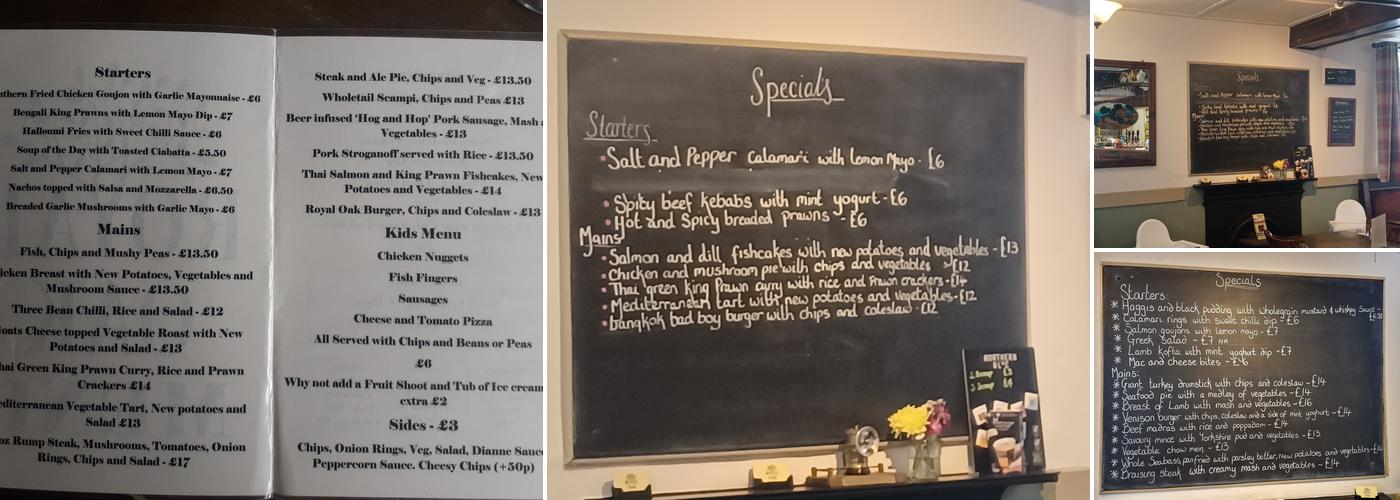 Starters
thern Fried Chicken Goujon with Garlic Mayonnaise - £6
Bengali King Prawns with Lemon Mayo Dip - £7
Halloumi Fries with Sweet Chilli Sauce - £6
Soup of the Day with Toasted Ciabatta - £5.50
Salt and Pepper Calamari with Lemon Mayo - £7
Nachos topped with Salsa and Mozzarella - £6.50
Breaded Garlic Mushrooms with Garlic Mayo - £6
Mains
Fish, Chips and Mushy Peas - £13.50
icken Breast with New Potatoes, Vegetables and
Mushroom Sauce - £13.50
Three Bean Chilli, Rice and Salad - £12
oats Cheese topped Vegetable Roast with New
Potatoes and Salad - £13
hai Green King Prawn Curry, Rice and Prawn
Crackers £14
editerranean Vegetable Tart, New potatoes and
Salad £13
oz Rump Steak, Mushrooms, Tomatoes, Onion
Rings, Chips and Salad - £17
Steak and Ale Pie, Chips and Veg - £13.50
Wholetail Scampi, Chips and Peas £13
Beer infused 'Hog and Hop' Pork Sausage, Mash a
Vegetables - £13
Pork Stroganoff served with Rice - £13.50
Thai Salmon and King Prawn Fishcakes, New
Potatoes and Vegetables - £14
Royal Oak Burger, Chips and Coleslaw - £13
Kids Menu
Chicken Nuggets
Fish Fingers
Sausages
Cheese and Tomato Pizza
All Served with Chips and Beans or Peas
£6
Why not add a Fruit Shoot and Tub of Ice cream
extra £2
Sides - £3
Chips, Onion Rings, Veg, Salad, Dianne Sauc
Peppercorn Sauce. Cheesy Chips (+50p)
Specials
Starters
• Salt and Pepper calamari with Lemon Mayo - £6
• Spity beef kebabs with mint yogurt - £6
• Hot and Spicy breaded prawns - £6
Mains
• Salmon and dill fishcakes with new potatoes and vegetables - £13
• Chicken and mushroom pie with chips and vegetables - £12
• Thai green king Prawn curry with rice and Prawn crackers - £14
• Mediterranean tart with new potatoes and vegetables - £12
• bangkok bad boy burger with chips and coleslaw - £12
NORTHERN
Specials
Specials
Starters:
* Haggis and black pudding with wholegrain mustard & whiskey sauce -
* Calamari rings with sweet chilli dip - £6
* Salmon goujons with lemon mayo - £7
* Greek Salad - £7 NA
* Lamb Kofta with mint yoghurt dip - £7
* Mac and cheese bites - £6
Mains:
* Giant turkey drumstick with chips and coleslaw - £14
* Seafood pie with a medley of vegetables - £14
* Breast of Lamb with mash and vegetables - £16
* Venison burger with chips, coleslaw and a side of mint yoghurt - £14
* Beef madras with rice and poppadom - £14
* Savoury mince with Yorkshire pud and vegetables - £13
* Vegetable chow mein - £13
* Whole Seabass, panfried with parsley butter, New potatoes and vegetables - £14
* Braising steak with creamy mash and vegetables - £14